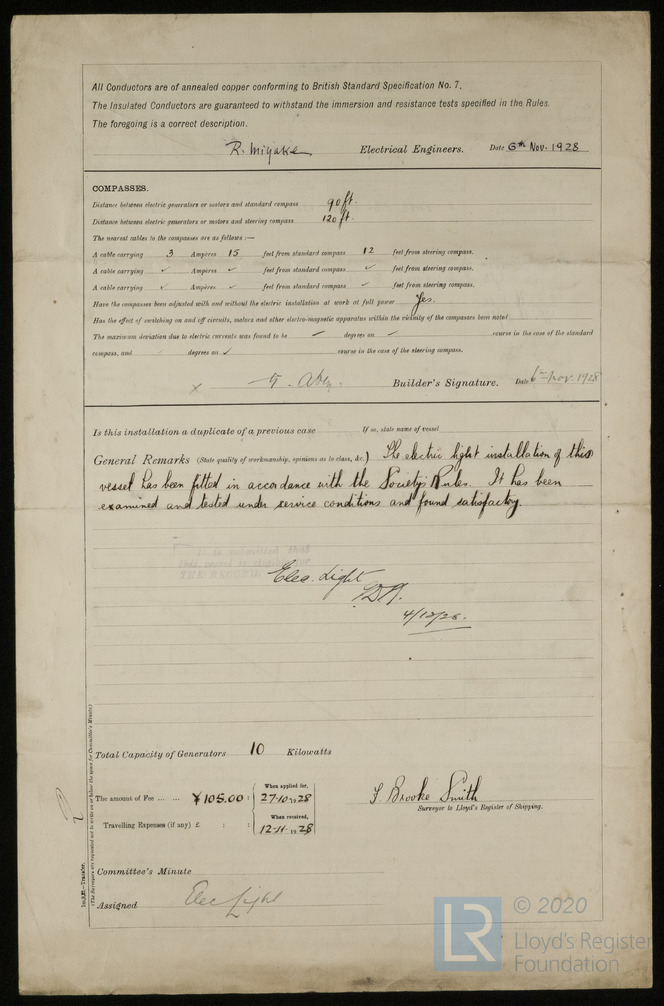 All Conductors are of annealed copper conforming to British Standard Specification No. 7.
The Insulated Conductors are guaranteed to withstand the immersion and resistance tests specified in the Rules.
The foregoing is a correct description.
R. Miyake Electrical Engineers. Date 6th Nov. 1928
COMPASSES.
Distance between electric generators or motors and standard compass 90 ft.
Distance between electric generators or motors and steering compass 120 ft.
The nearest cables to the compasses are as follows:—
A cable carrying 3 Ampères 15 feet from standard compass 12 feet from steering compass.
A cable carrying ✓ Ampères ✓ feet from standard compass ✓ feet from steering compass.
A cable carrying ✓ Ampères ✓ feet from standard compass ✓ feet from steering compass.
Have the compasses been adjusted with and without the electric installation at work at full power Yes.
Has the effect of switching on and off circuits, motors and other electro-magnetic apparatus within the vicinity of the compasses been noted
The maximum deviation due to electric currents was found to be ✓ degrees on ✓ course in the case of the standard
compass, and degrees on ✓ course in the case of the steering compass.
x Builder's Signature. Date 6th Nov. 1928
Is this installation a duplicate of a previous case If so, state name of vessel
General Remarks (State quality of workmanship, opinions as to class, &c.) The electric light installation of this
vessel has been fitted in accordance with the Society's Rules. It has been
examined and tested under service conditions and found satisfactory.
It is submitted that
this vessel is eligible for
THE RECORD.
Elec. Light
4/12/28.
Total Capacity of Generators 10 Kilowatts
The amount of Fee ... ... ¥105.00 : When applied for, 27-10-1928
Travelling Expenses (if any) £ : : When received, 12-11-1928
J. Brooke Smith
Surveyor to Lloyd's Register of Shipping.
Committee's Minute
Assigned Elec Light
(The Surveyors are requested not to write on or below the space for Committee's Minute.)
© 2020
LR
Lloyd's Register
Foundation